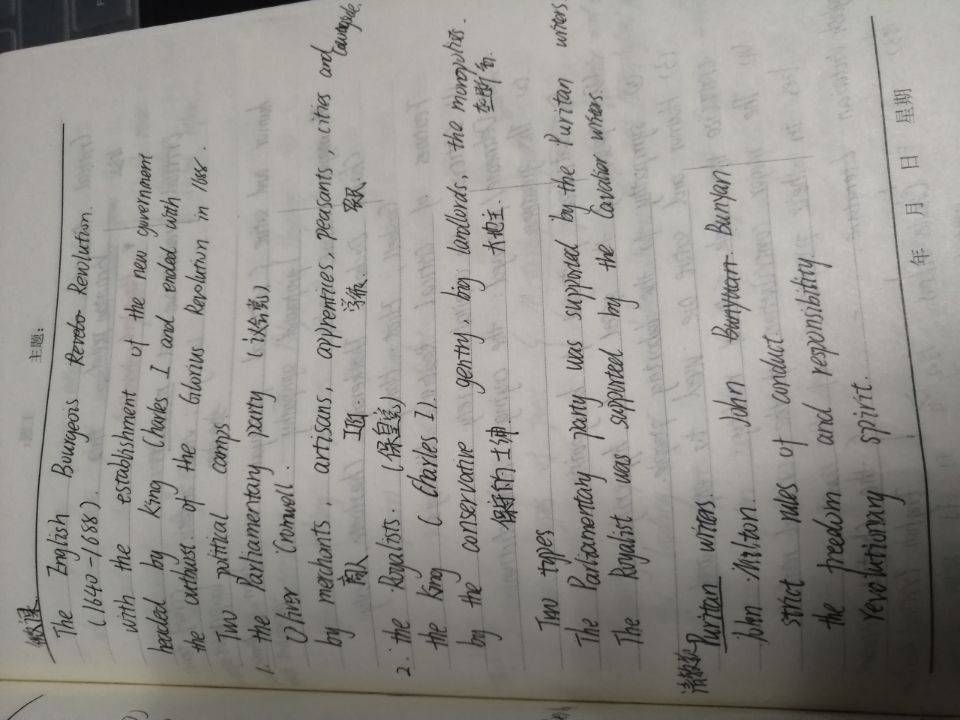 主题：
The English Bourgeois Revolution.
(1640-1688).
with the establishment of the new government
headed by king Charles I and ended with
the outhust of the Glorius Revolution in 1688.
Two political camps.
1. the Parliamentary party (议会党)
Oliver Cromwell.
by merchants, artisans, apprentries, peasants, cities and
商人 工匠 学徒 农民
2. the Royalists. (保皇党)
the king (Charles I).
by the conservative gentry, big landlords, the monopolies.
保守的士绅 大地主 垄断者
Two types
The Parliamentary party was supported by the Puritan writers
The Royalist was supported by the Cavalier writers.
清教徒 Puritan writers.
John Milton. John Bunyan
strict rules of conduct.
the freedom and responsibility
revolutionary spirit.
年 月 日 星期